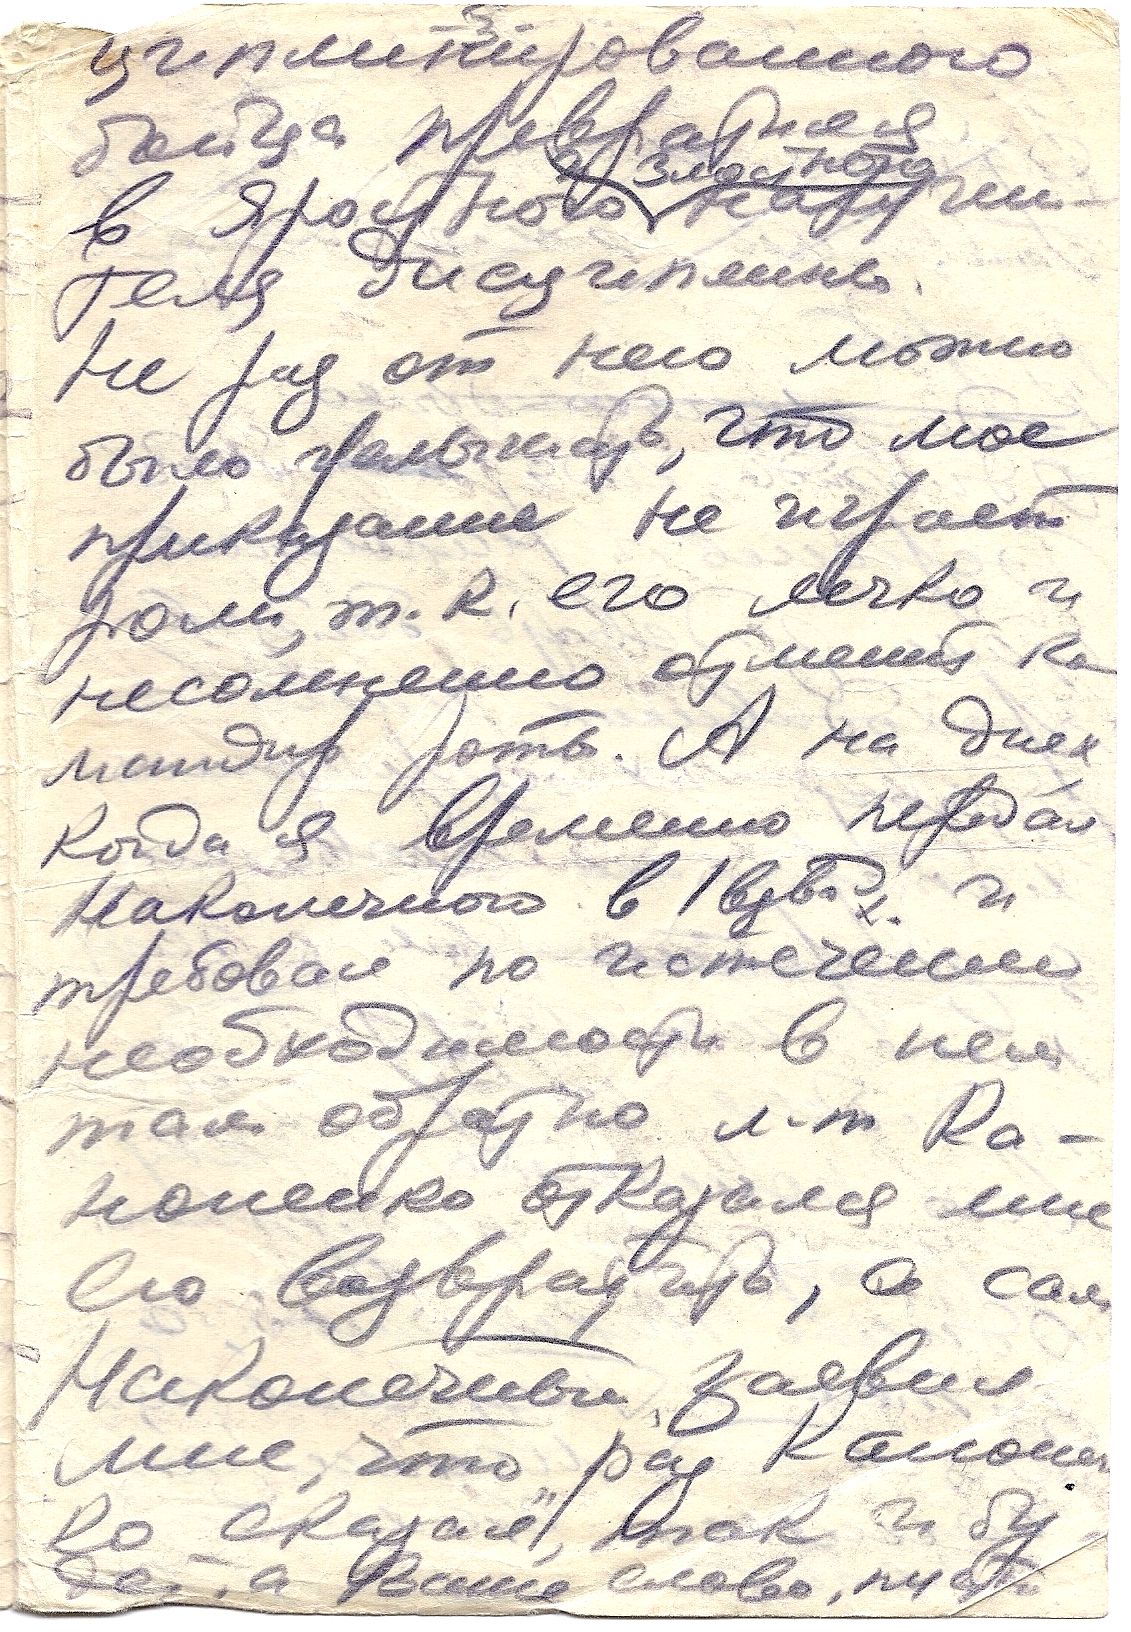 3
циплинированного
бойца превратился
в яростного и злостного наруши-
теля дисциплины.
Не раз от него можно
было услышать, что мое
приказание не играет
роли, т.к. его легко и
несомненно отменит ко
мандир роты. А на днях
когда я временно передал
Наконечного в 1 взвод и
требовал по истечении
необходимости в нем
там обратно л-т Ка-
ноненко отказался мне
его возвратить, а сам
Наконечный заявил
мне, что "раз Кононен
ко сказал", так и бу
дет, а Ваше слово, пусть